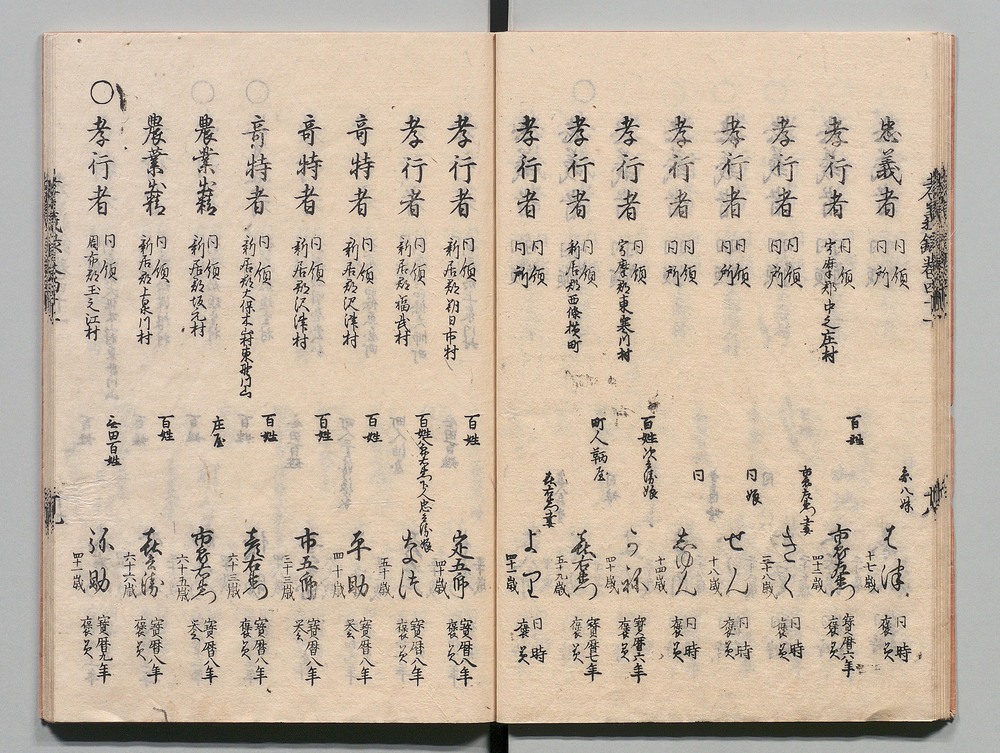 忠義者 同領同所 糸八妹 はつ 十七歳 同時褒美
孝行者 同領宇摩郡中之庄村 百姓 市郎左衛門 四十三歳 寛暦六年褒美
孝行者 同領同所 市郎左衛門妻 きく 三十八歳 同時褒美
孝行者 同領同所 同娘 せん 十八歳 同時褒美
孝行者 同領同所 同 しゆん 十四歳 同時褒美
孝行者 同領宇摩郡東寒川村 百姓次兵衛娘 かね 四十歳 寶暦六年褒美
○孝行者 同領新居郡西條横町 町人鞆屋 喜右衛門 五十九歳 寶暦七年褒美
孝行者 同領同所 喜右衛門妻 より 四十一歳 同時褒美
孝行者 同領新居郡朔日市村 百姓 定五郎 四十歳 寶暦八年褒美
孝行者 同領新居郡福武村 なつ 五十歳 寶暦八年褒美
奇特者 同領新居郡沢津村 百姓 平助 四十歳 寶暦八年
奇特者 同領新居郡沢津村 百姓 市五郎 三十三歳 寶暦八年
○奇特者 同領新居郡大保木村東 百姓 六十三歳 寶暦八年褒美
農業出精 同領新居郡坂元村 庄屋 六十五歳 寶暦八年
農業出精 同領新居郡上泉川村 百姓 六十六歳 寶暦八年褒美
○孝行者 同領周布郡玉之江村 無田百姓 弥助 四十二歳 寶暦九年褒美